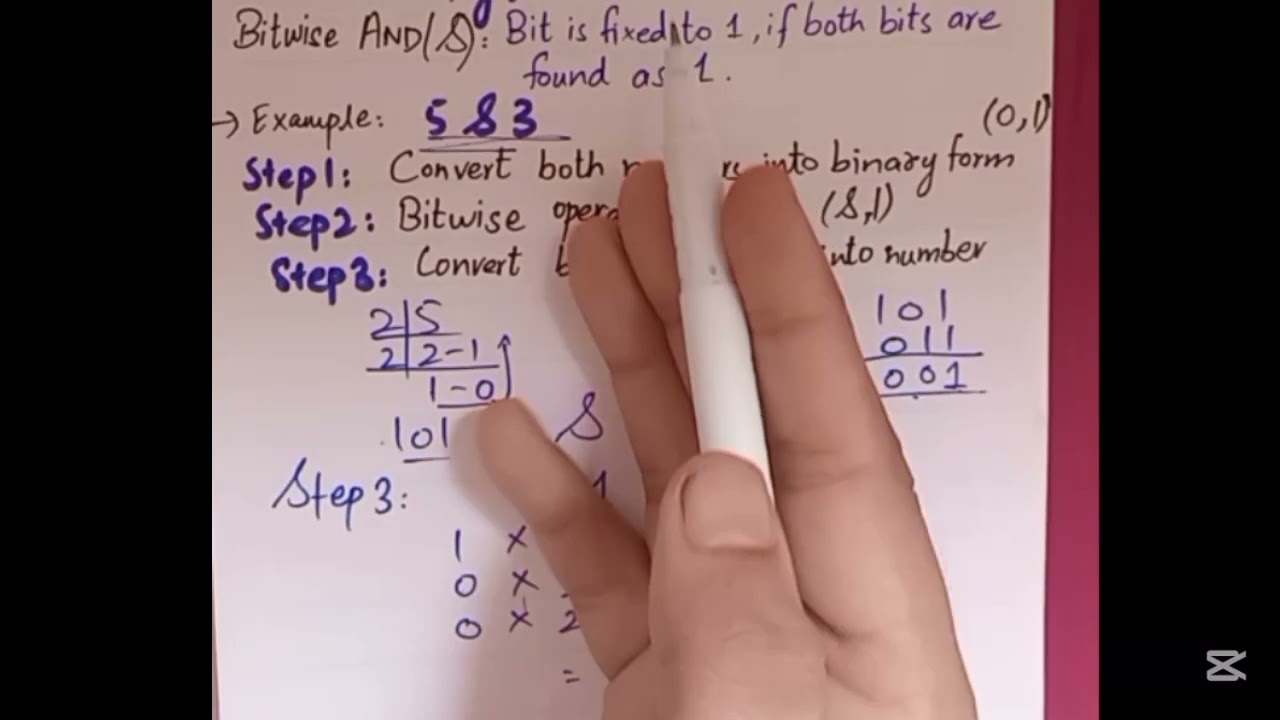 Bitwise AND(&): Bit is fixed to 1, if both bits are
found as 1.
→ Example: 5 & 3
(0,1)
Step1: Convert both into binary form
Step2: Bitwise (&,1)
Step3: Convert into number
2 5
2 2-1
1-0
101
101
011
001
&
Step 3:
1
1 ×
0 ×
0 × 2
=